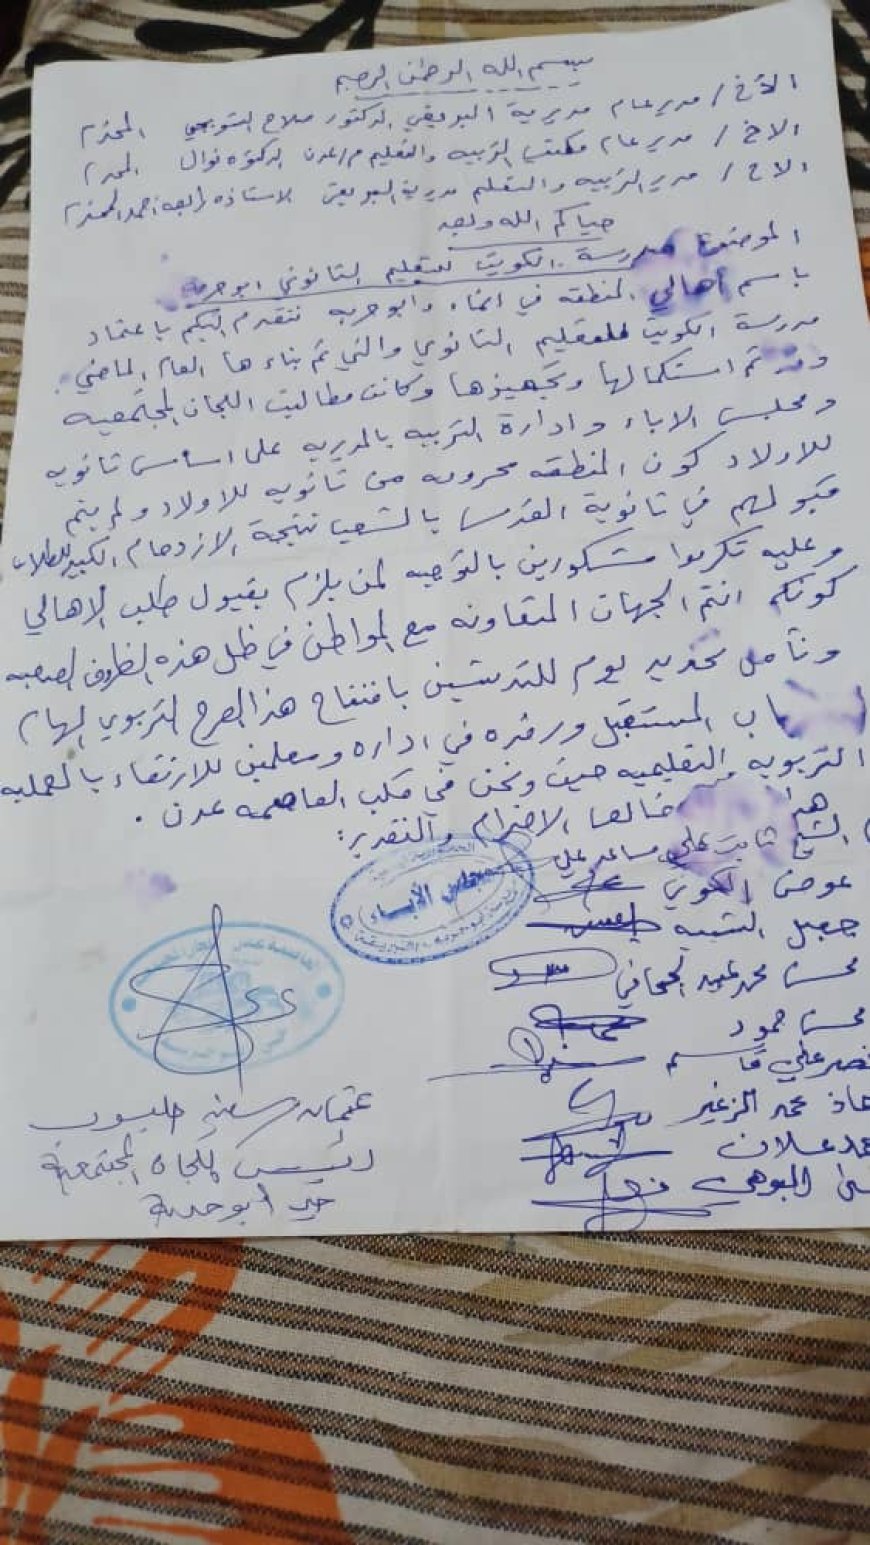 بسم الله الرحمن الرحيم
الأخ / مدير عام مديرية البريقي الدكتور صلاح الشوبجي المحترم
الاخ / مدير عام مكتب التربيه والتعليم م/عدن الدكتوره نوال المحترم
الاخ / مدير التربيه والتعليم مديرية البريقي الاستاذه احمد المحترم
حياكم الله وبعد
الموضوع مدرسة الكويت للتعليم الثانوي ابو حربه
باسم أهالي المنطقه في انماء وابو حربه نتقدم اليكم باعتماد
مدرسة الكويت للتعليم الثانوي والتي تم بناءها العام الماضي
وتم استكمالها وتجهيزها وكانت مطالبت اللجان المجتمعيه
ومجلس الاباء وادارة التربيه بالمديريه على اساس ثانويه
للاولاد كون المنطقه محرومه من ثانويه للاولاد ولم يتم
قبولهم في ثانوية القدس بالشعب نتيجة الازدحام الكبير للطلاب
وعليه تكرموا مشكورين بالتوجيه لمن يلزم بقبول طلب الأهالي
كونكم انتم الجهات المتعاونه مع المواطن في ظل هذه الظروف الصعبه
ونأمل تحديد يوم للتدشين بافتتاح هذا الصرح التربوي الهام
المستقبل ورفده في اداره ومعلمين للارتقاء بالعمليه
التربويه التعليميه حيث ونحن في قلب العاصمه عدن .
هذا خالص الاحترام والتقدير:
الشيخ ثابت علي مساعد علي
عوض الكوي
جميل
محسن محمد عبيد الجحافي
محسن حمود
علي قاسم
محمد الزغير
علان
مجلس الأباء
عثمان حليبوب
رئيس اللجان المجتمعية
حي أبو حربة